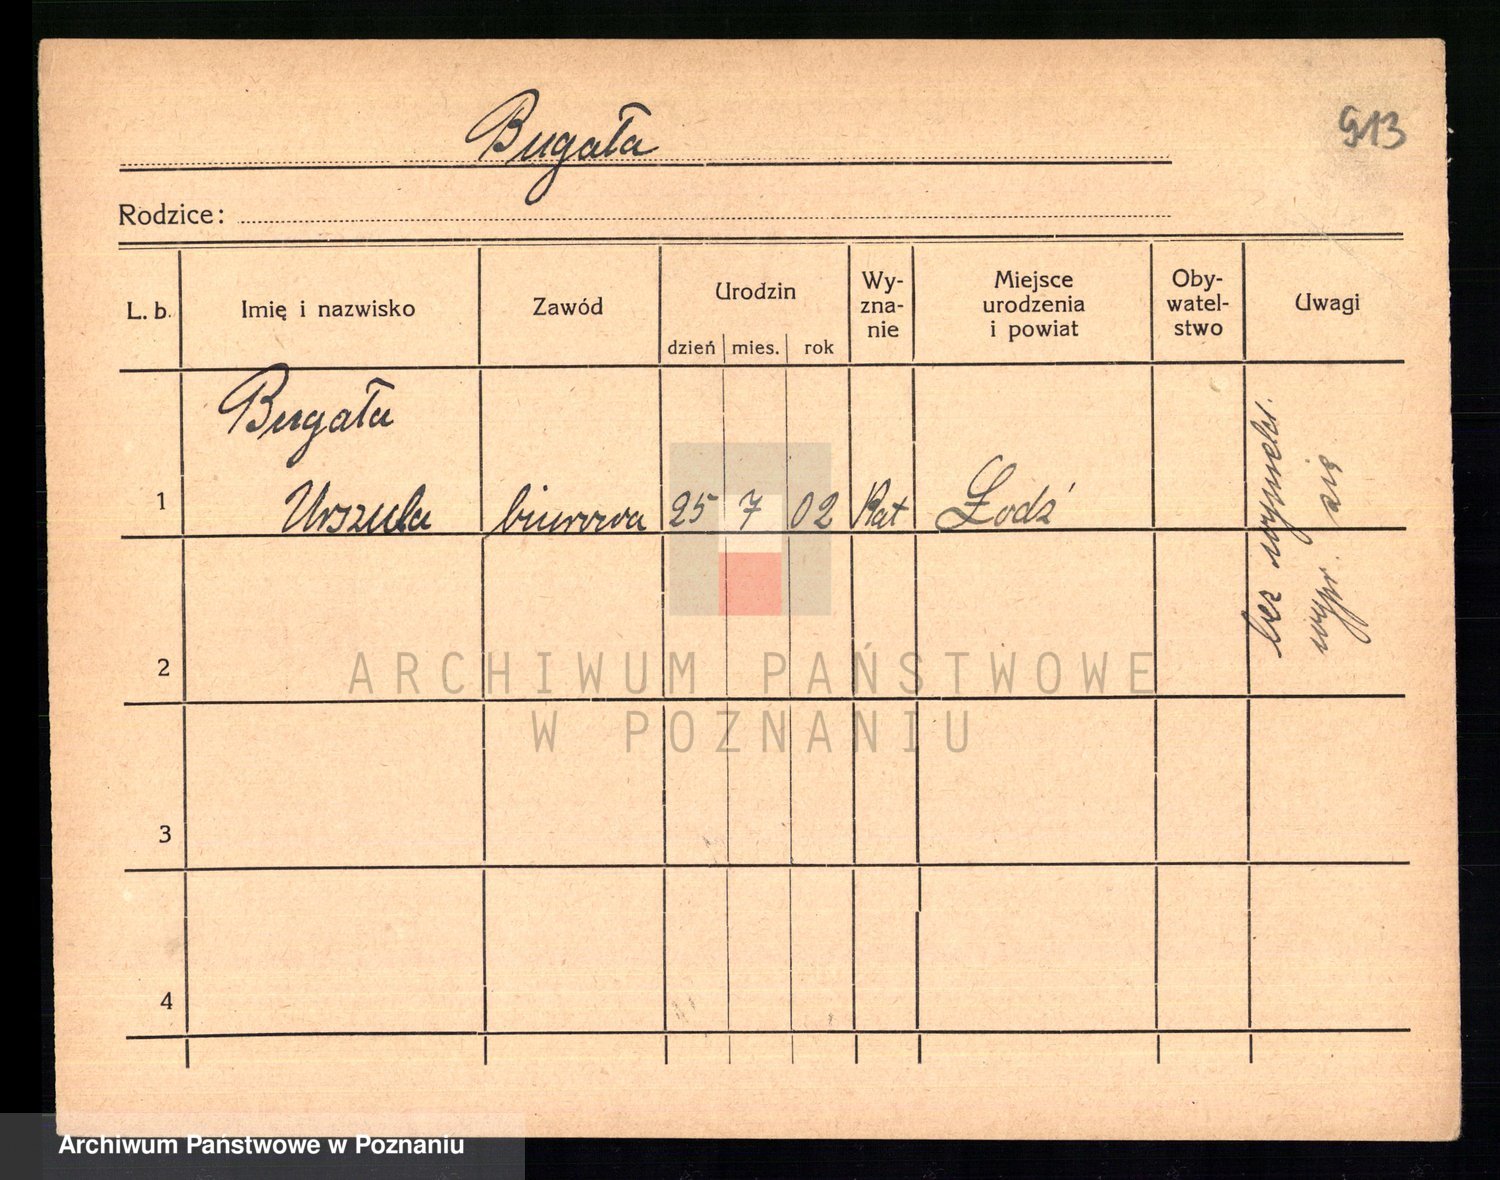 Bugała
913
Rodzice:
L. b.
Imię i nazwisko
Zawód
Urodzin
dzień
mies.
rok
Wy-
zna-
nie
Miejsce
urodzenia
i powiat
Oby-
watel-
stwo
Uwagi
Bugała
1
Urszula
biurowa
25
7
02
Kat
Łodź
bez
wypr. się
2
3
4
ARCHIWUM PAŃSTWOWE
W POZNANIU
Archiwum Państwowe w Poznaniu